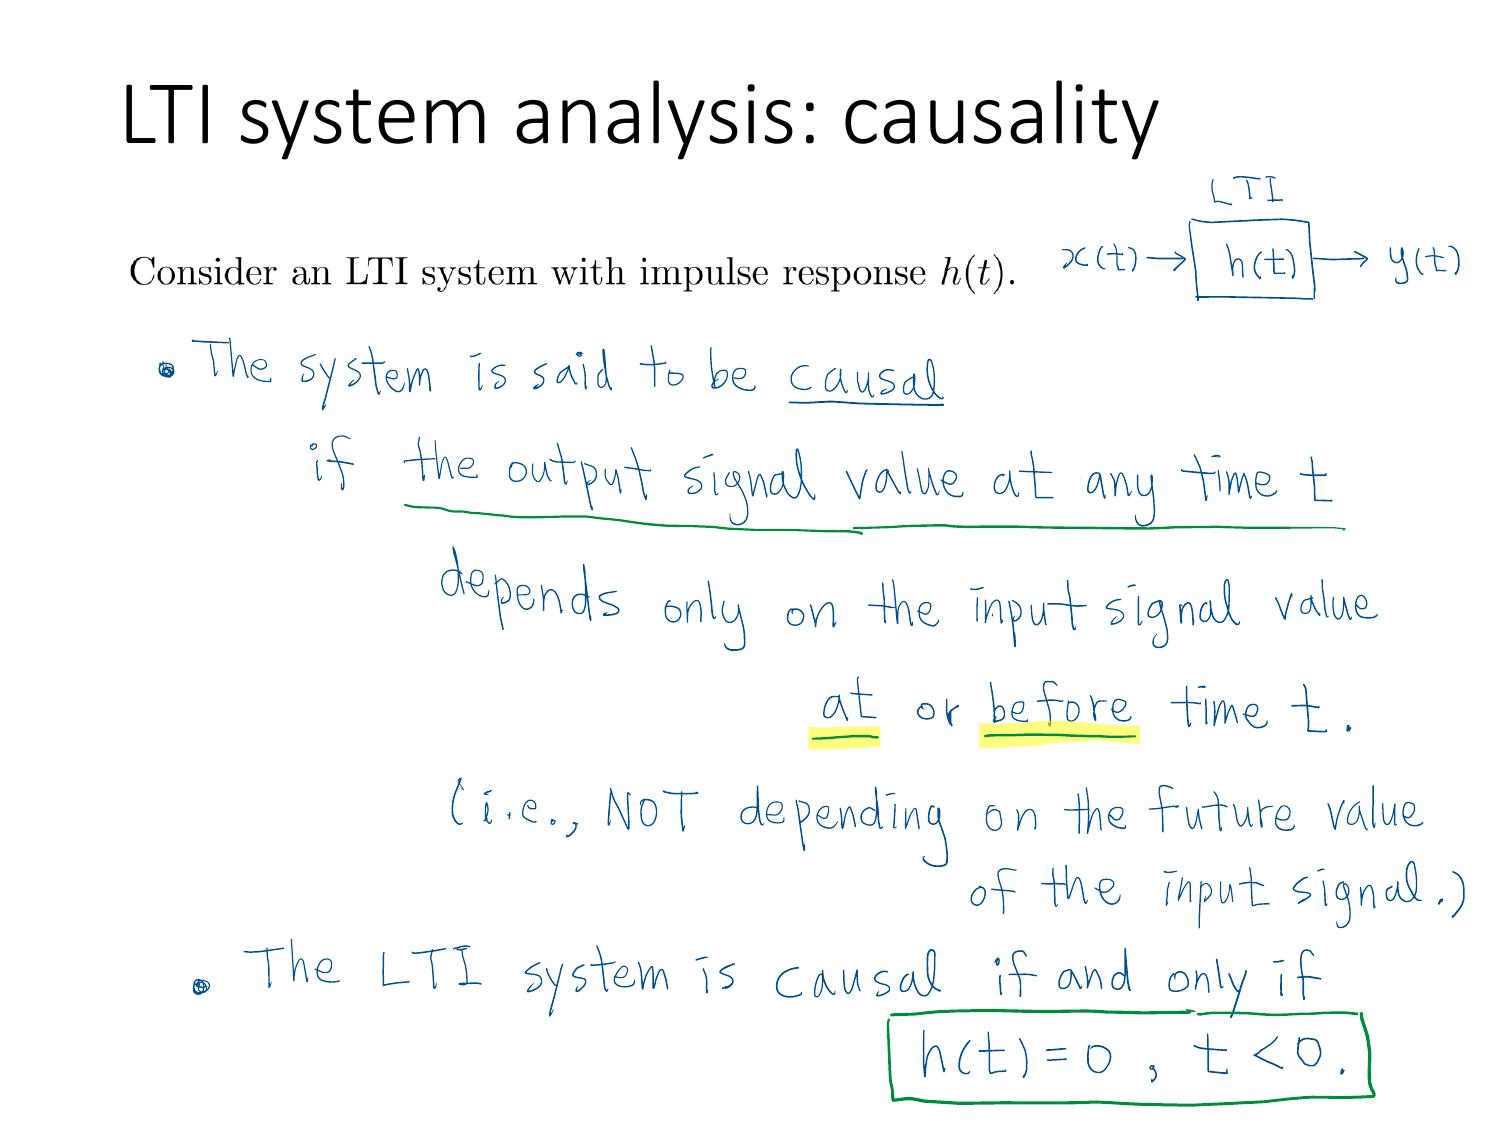 LTI system analysis: causality
LTI
Consider an LTI system with impulse response h(t). x(t) → h(t) → y(t)
• The system is said to be causal
if the output signal value at any time t
depends only on the input signal value
at or before time t.
(i.e., NOT depending on the future value
of the input signal.)
• The LTI system is causal if and only if
h(t) = 0, t < 0.